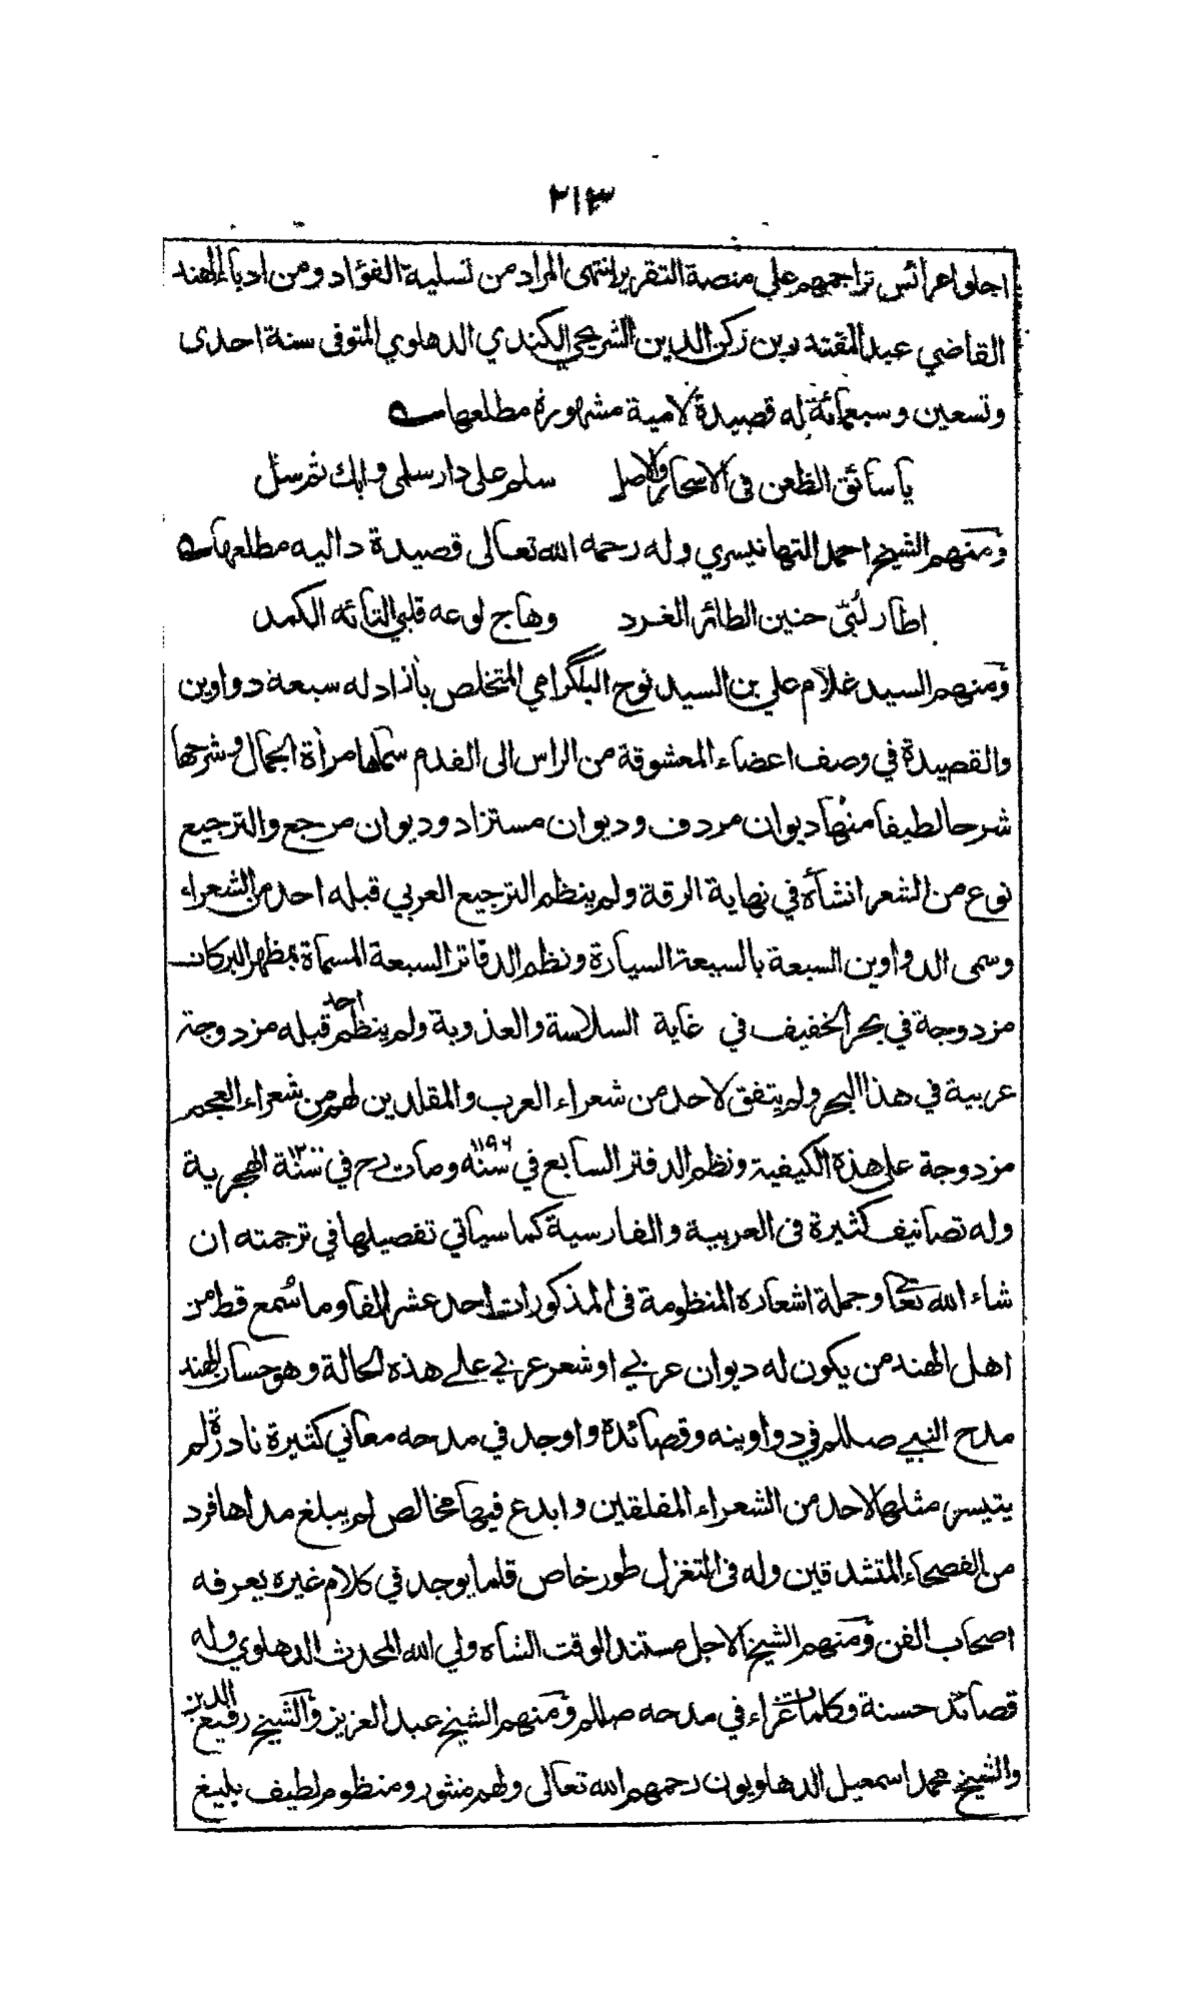 ٢١٣
اجلو اعرائس تراجمهم علي منصة التقرير انتهى المراد من تسلية الفؤاد ومن ادباء الهند
القاضي عبد المقتدر بن ركن الدين الشريحي الكندي الدهلوي المتوفى سنة احدى
وتسعين وسبعمائة له قصيدة لامية مشهورة مطلعها
يا سائق الظعن في الاسحار والاصل سلم على دار سلمى وابك ثم سل
ومنهم الشيخ احمد التهانيسري وله رحمه الله تعالى قصيدة داليه مطلعها
اطار لبي حنين الطائر الغرد وهاج لوعه قلبي التائه الكمد
ومنهم السيد غلام علي بن السيد نوح البلگرامي المتخلص بآزاد له سبعة دواوين
والقصيدة في وصف اعضاء المعشوقة من الراس الى القدم سماها مرأة الجمال وشرحها
شرحا لطيفا منها ديوان مردف وديوان مستزاد وديوان مرجع والترجيع
نوع من الشعر انشأه في نهاية الرقة ولم ينظم الترجيع العربي قبله احد من الشعراء
وسمى الدواوين السبعة بالسبعة السيارة ونظم الدفاتر السبعة المسماة بمظهر البركات
مزدوجة في بحر الخفيف في غاية السلاسة والعذوبة ولم ينظم احد قبله مزدوجة
عربية في هذا البحر ولم يتفق لاحد من شعراء العرب والمقلدين لهم من شعراء العجم
مزدوجة على هذه الكيفية ونظم الدفتر السابع في سنه ١١٩٤ ومات رح في سنة ١٢٠٠ الهجرية
وله تصانيف كثيرة في العربية والفارسية كما سياتي تفصيلها في ترجمته ان
شاء الله تعالى وجملة اشعاره المنظومة في المذكورات احد عشر الفا وما سُمع قط من
اهل الهند من يكون له ديوان عربي او شعر عربي علے هذه الحالة وهو حسان الهند
مدح النبي صللم في دواوينه وقصائده واوجد في مدحه معاني كثيرة نادرة لم
يتيسر مثلها لاحد من الشعراء المفلقين وابدع فيها مخالص لم يبلغ مداها فرد
من الفصحاء المتشدقين وله في التغزل طور خاص قلما يوجد في كلام غيره يعرفه
اصحاب الفن ومنهم الشيخ الاجل مستند الوقت الشاه ولي الله المحدث الدهلوي وله
قصائد حسنة وكلمات غراء في مدحه صللم ومنهم الشيخ عبد العزيز والشيخ رفيع الدين
والشيخ محمد اسمعيل الدهلويون رحمهم الله تعالى ولهم منثور ومنظوم لطيف بليغ